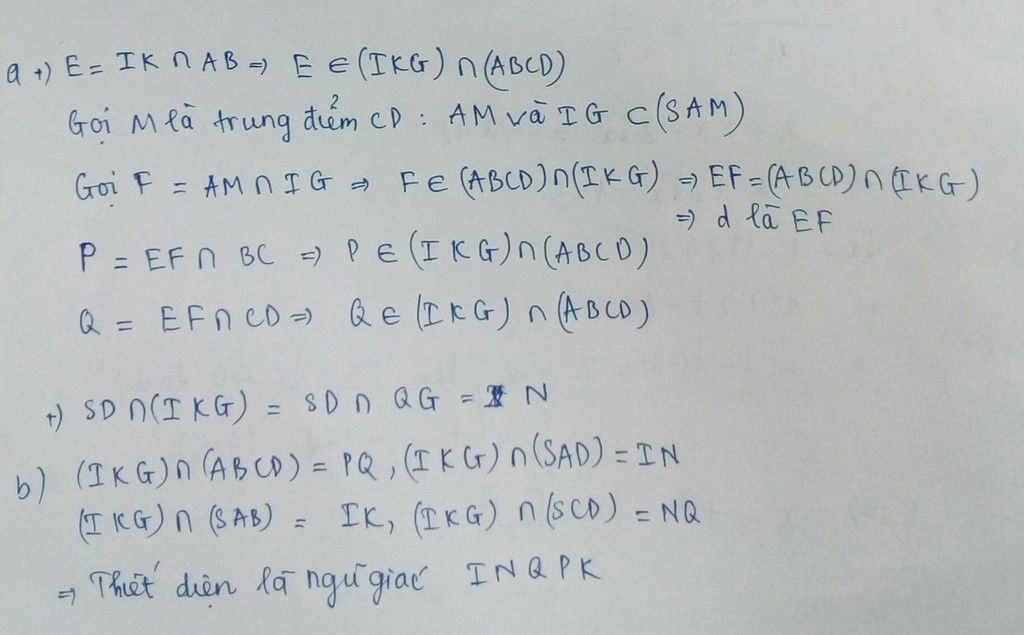 a +) E = IK ∩ AB ⇒ E ∈ (IKG) ∩ (ABCD)
Gọi M là trung điểm CD : AM và IG ⊂ (SAM)
Gọi F = AM ∩ IG ⇒ F ∈ (ABCD) ∩ (IKG) ⇒ EF = (ABCD) ∩ (IKG)
⇒ d là EF
P = EF ∩ BC ⇒ P ∈ (IKG) ∩ (ABCD)
Q = EF ∩ CD ⇒ Q ∈ (IKG) ∩ (ABCD)
+) SD ∩ (IKG) = SD ∩ QG = N
b) (IKG) ∩ (ABCD) = PQ, (IKG) ∩ (SAD) = IN
(IKG) ∩ (SAB) = IK, (IKG) ∩ (SCD) = NQ
⇒ Thiết diện là ngũ giác INQPK